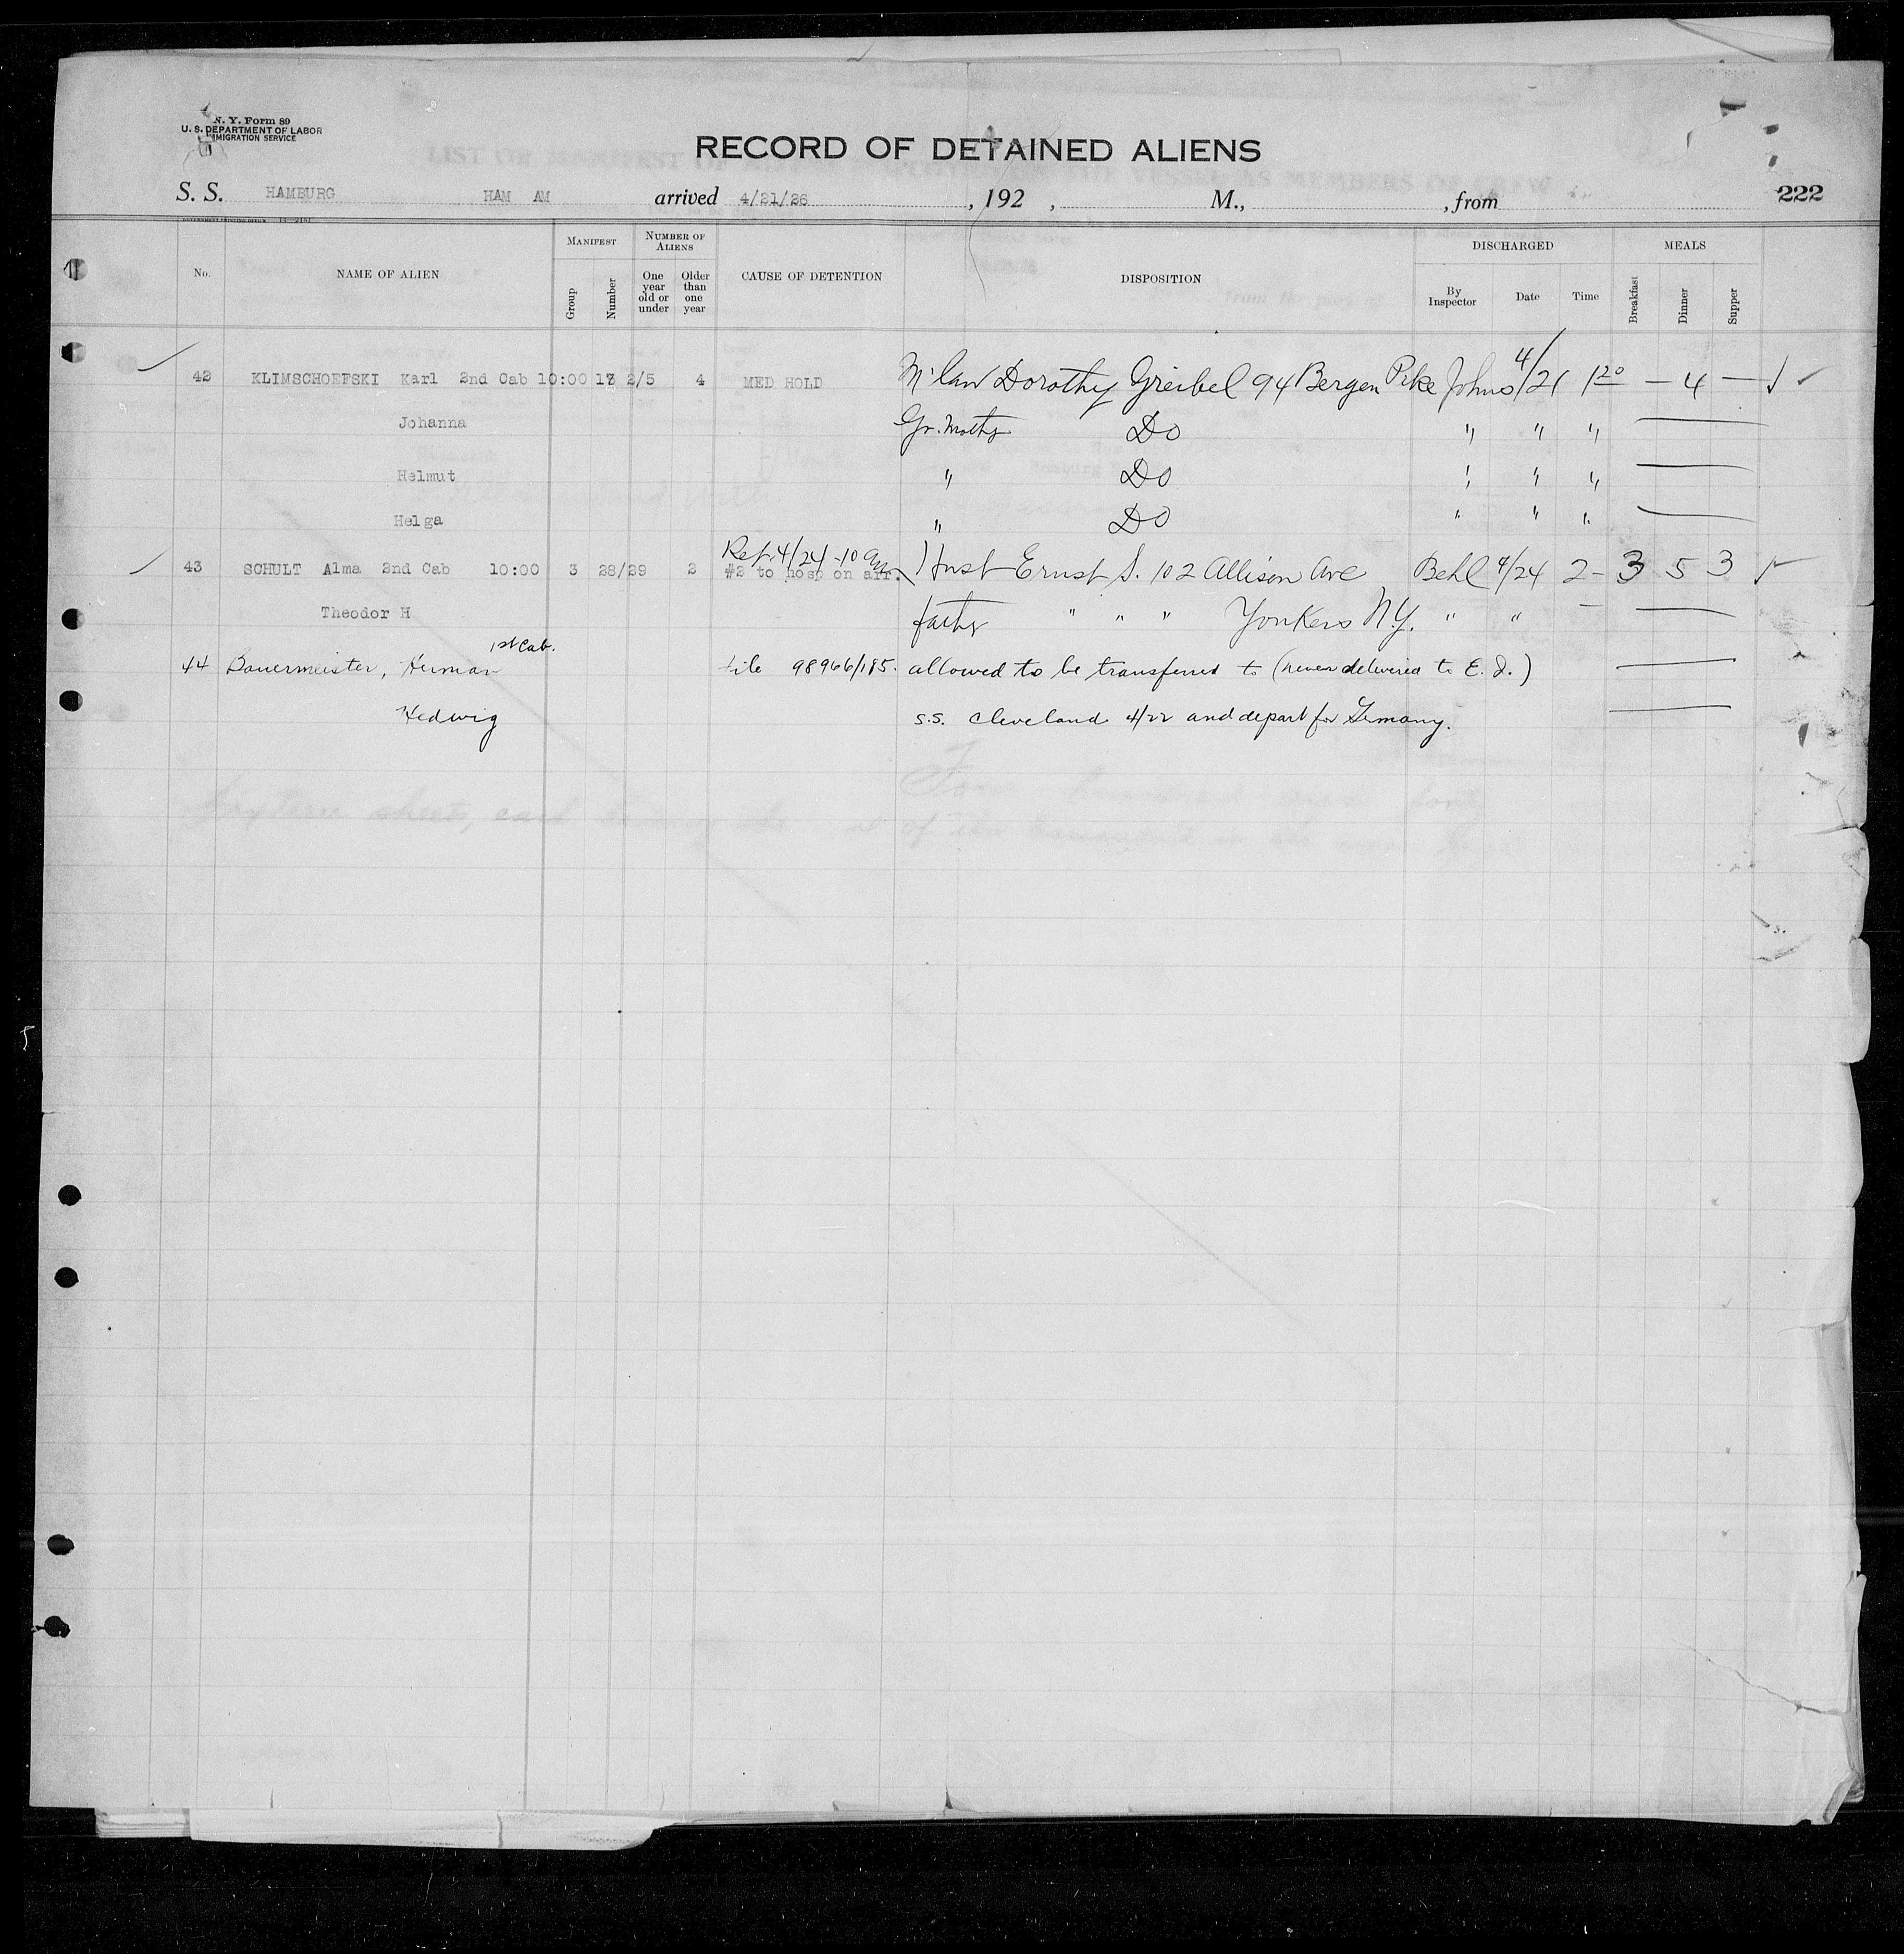 N. Y. Form 89
U. S. DEPARTMENT OF LABOR
IMMIGRATION SERVICE
RECORD OF DETAINED ALIENS
S. S. HAMBURG HAM AM arrived 4/21/26 , 192 , M., , from 222
No. NAME OF ALIEN MANIFEST Group Number NUMBER OF ALIENS One year old or under Older than one year CAUSE OF DETENTION DISPOSITION DISCHARGED By Inspector Date Time MEALS Breakfast Dinner Supper
42 KLIMSCHOEFSKI Karl 2nd Cab 10:00 2/5 4 MED HOLD M'law Dorothy Greibel 94 Bergen Pike Johns 4/21 1 20 — 4 —
Johanna Gr. Mothr Do " " "
Helmut " Do " " "
Helga " Do " " "
Ret. 4/24 - 10 am
43 SCHULT Alma 2nd Cab 10:00 3 28/29 2 #2 to hosp on arr. Husb Ernst S. 102 Allison Ave Behl 4/24 2- 3 5 3
Theodor H father " " " Yonkers N.Y. " " —
1st Cab.
44 Bauermeister, Herman file 98966/185. allowed to be transferred to (never delivered to E. I.)
Hedwig S.S. Cleveland 4/22 and depart for Germany.